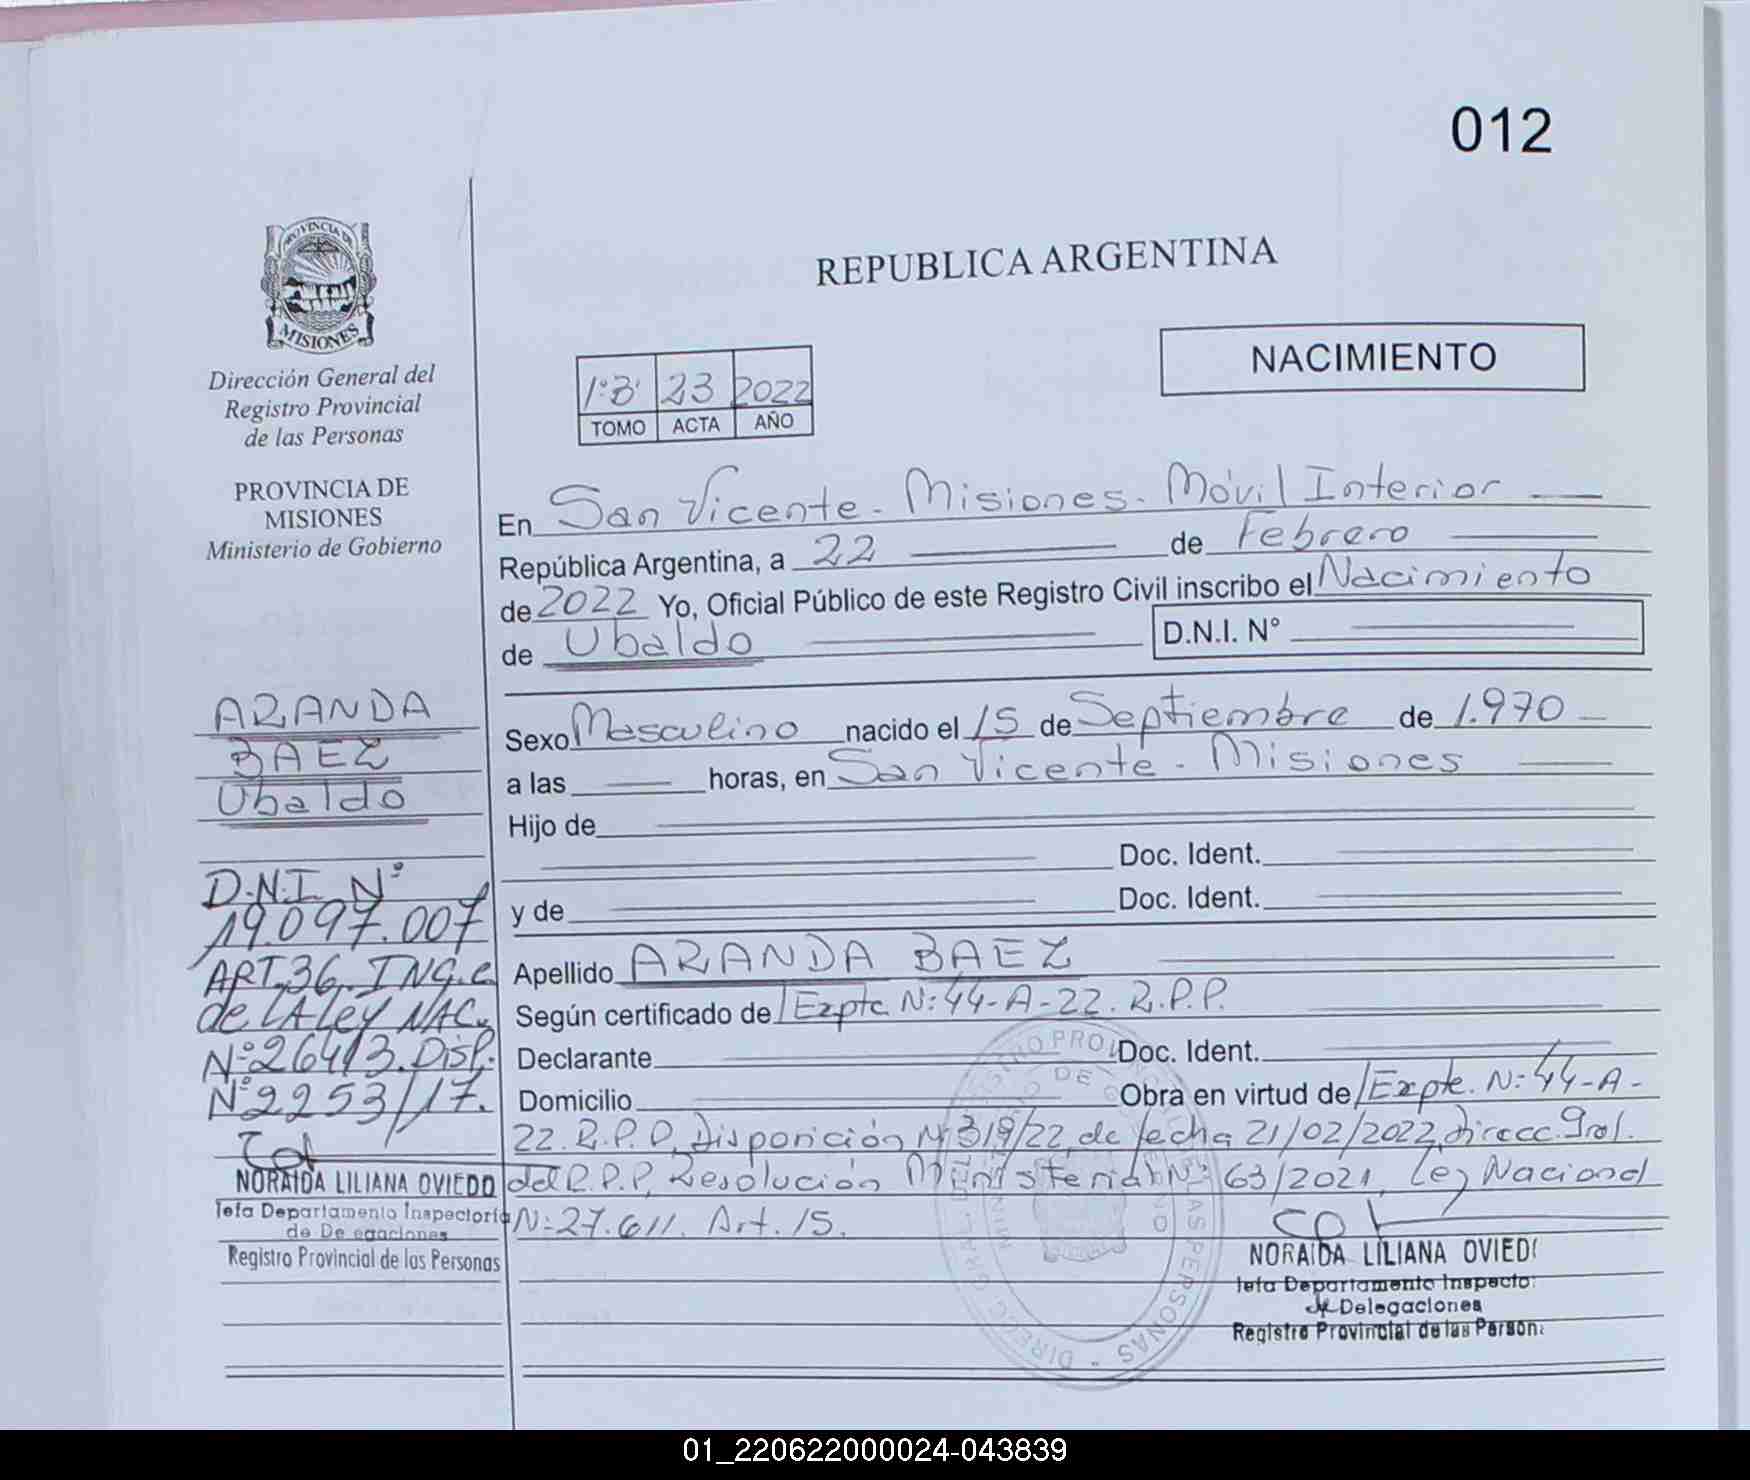 012
PROVINCIA DE
MISIONES
Dirección General del
Registro Provincial
de las Personas
PROVINCIA DE
MISIONES
Ministerio de Gobierno
ARANDA
BAEZ
Ubaldo
D.N.I. Nº
19.097.007
ART.36. INC.c
de LA Ley NAC.
Nº26413. Disp.
Nº2253/17.
NORAIDA LILIANA OVIEDO
Jefa Departamento Inspectoría
de De egaciones
Registro Provincial de las Personas
REPUBLICA ARGENTINA
NACIMIENTO
1º"B" 23 2022
TOMO ACTA AÑO
En San Vicente - Misiones - Móvil Interior
República Argentina, a 22 de Febrero
de 2022 Yo, Oficial Público de este Registro Civil inscribo el Nacimiento
de Ubaldo D.N.I. N°
Sexo Masculino nacido el 15 de Septiembre de 1.970
a las horas, en San Vicente - Misiones
Hijo de
Doc. Ident.
y de Doc. Ident.
Apellido ARANDA BAEZ
Según certificado de Expte. Nº 44-A-22. R.P.P.
Declarante Doc. Ident.
Domicilio Obra en virtud de Expte. Nº 44-A-
22. R.P.P, Disposición Nº 319/22, de fecha 21/02/2022, Direcc. Gral.
del R.P.P, Resolución Ministerial Nº 63/2021, Ley Nacional
Nº 27.611. Art. 15.
NORAIDA LILIANA OVIED
Jefa Departamento Inspecto
de Delegaciones
Registro Provincial de las Person
01_220622000024-043839